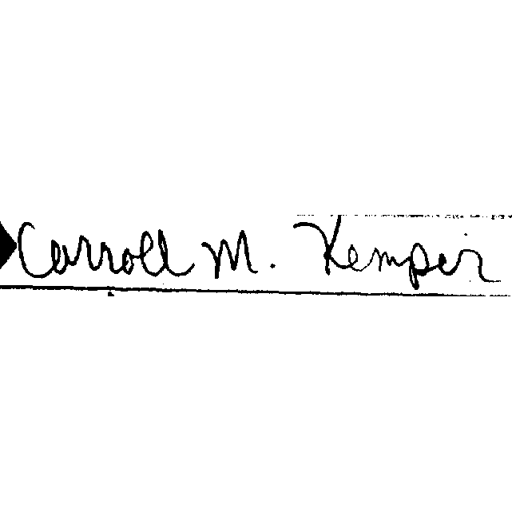 Carroll M. Kemper